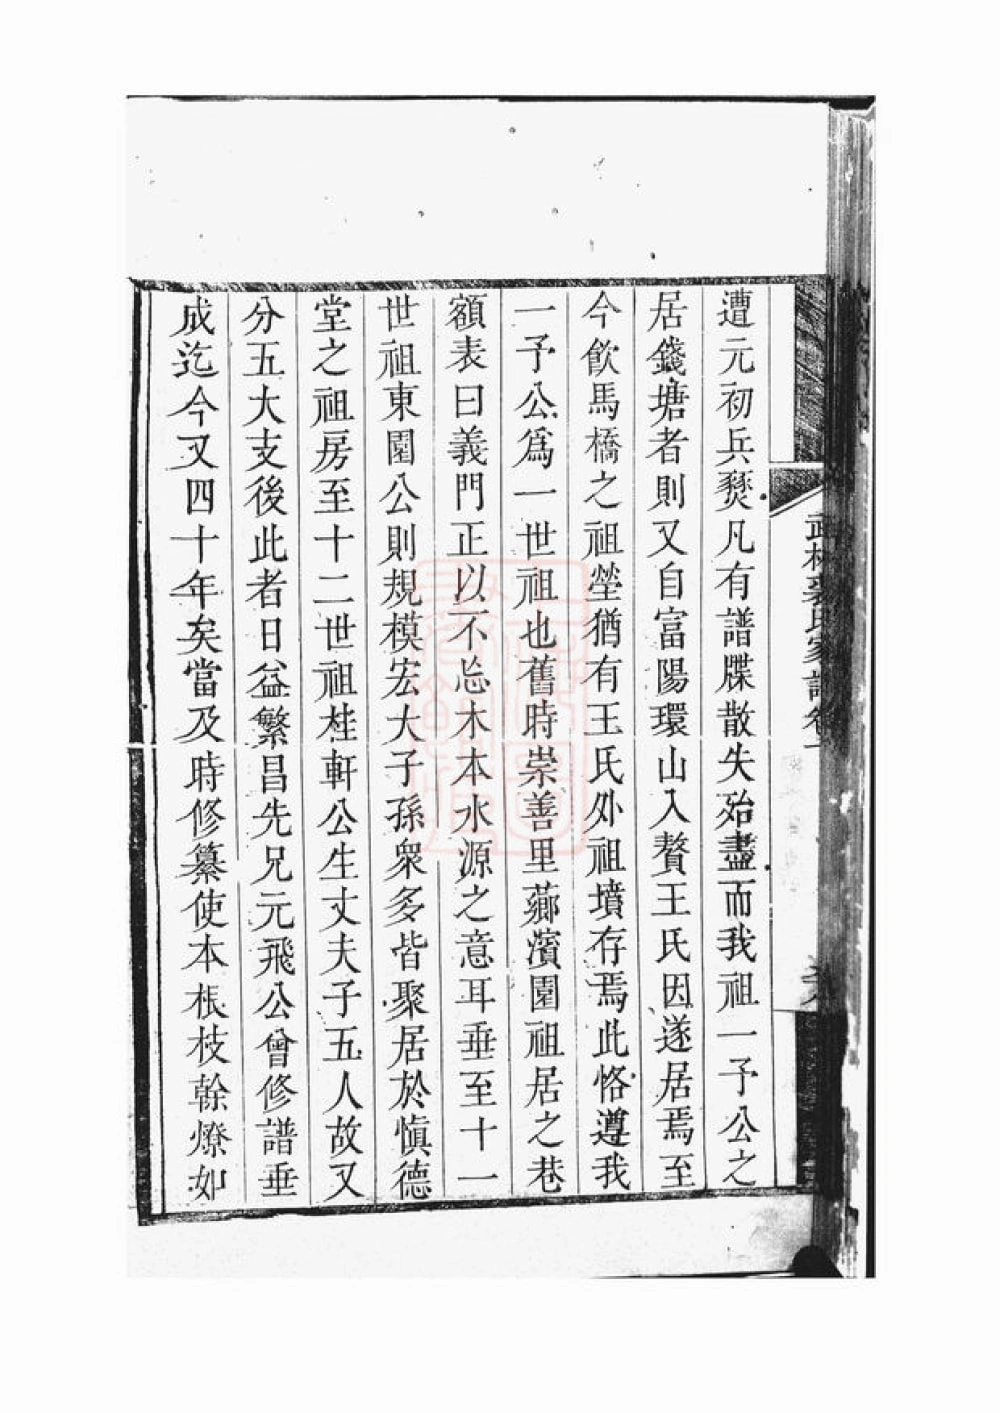 遭元初兵燹凡有譜牒散失殆盡而我祖一予公之
居錢塘者則又自富陽環山入贅王氏因遂居焉至
今飲馬橋之祖塋猶有王氏外祖墳存焉此恪遵我
一予公爲一世祖也舊時崇善里薌濱園祖居之巷
額表曰義門正以不忘木本水源之意耳垂至十一
世祖東園公則規模宏大子孫衆多皆聚居於愼德
堂之祖房至十二世祖桂軒公生丈夫子五人故又
分五大支後此者日益繁昌先兄元飛公曾修譜垂
成迄今又四十年矣當及時修纂使本根枝幹燎如